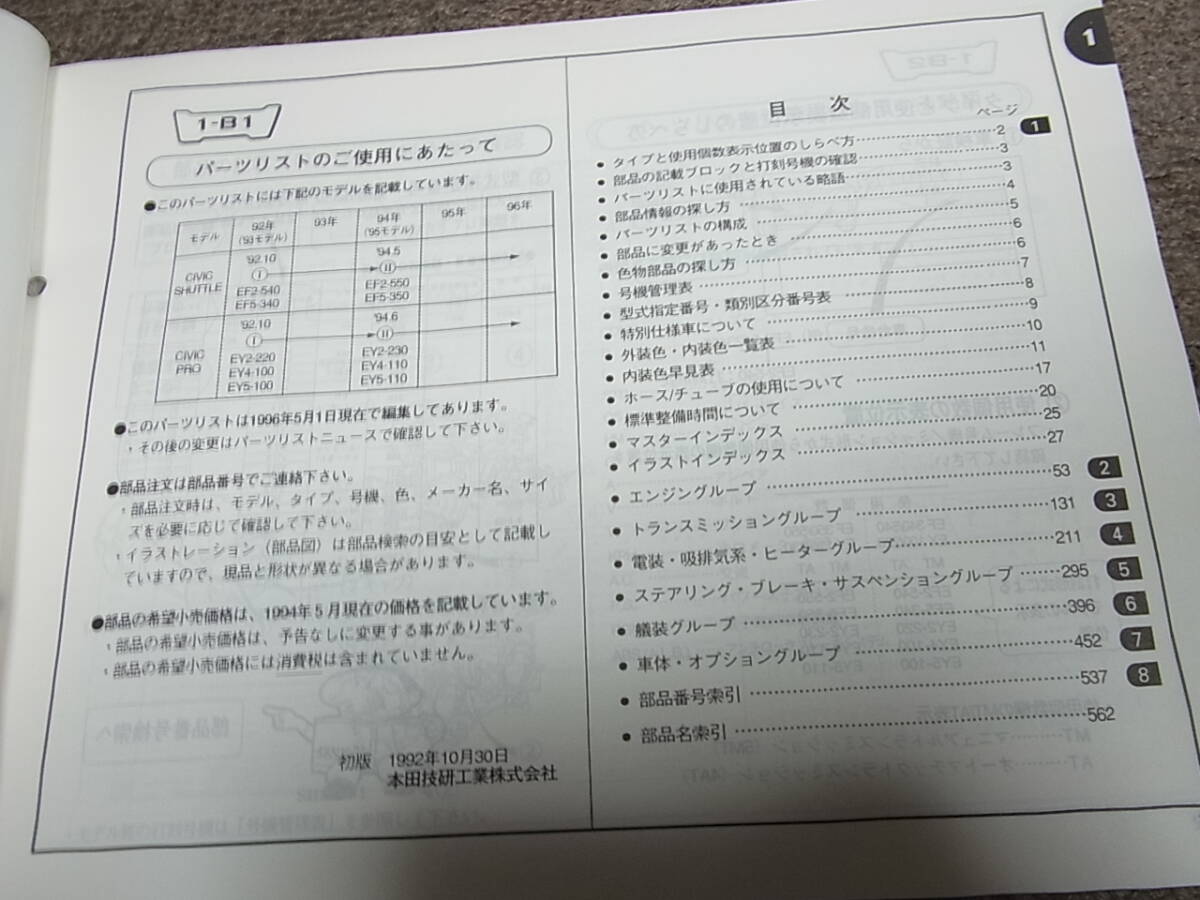 1
1-B1
パーツリストのご使用にあたって
●このパーツリストには下記のモデルを記載しています。
モデル 92年 (93モデル) 93年 94年 (95モデル) 95年 96年
CIVIC SHUTTLE '92.10 Ⅰ EF2-540 EF5-340 '94.5 Ⅱ EF2-550 EF5-350
CIVIC PRO '92.10 Ⅰ EY2-220 EY4-100 EY5-100 '94.6 Ⅱ EY2-230 EY4-110 EY5-110
●このパーツリストは1996年5月1日現在で編集してあります。
・その後の変更はパーツリストニュースで確認して下さい。
●部品注文は部品番号でご連絡下さい。
・部品注文時は、モデル、タイプ、号機、色、メーカー名、サイ
ズを必要に応じて確認して下さい。
・イラストレーション（部品図）は部品検索の目安として記載し
ていますので、現品と形状が異なる場合があります。
●部品の希望小売価格は、1994年5月現在の価格を記載しています。
・部品の希望小売価格は、予告なしに変更する事があります。
・部品の希望小売価格には消費税は含まれていません。
初版 1992年10月30日
本田技研工業株式会社
目 次
ページ
●タイプと使用個数表示位置のしらべ方……2 1
●部品の記載ブロックと打刻号機の確認……3
●パーツリストに使用されている略語……3
●部品情報の探し方……4
●パーツリストの構成……5
●部品に変更があったとき……6
●色物部品の探し方……6
●号機管理表……7
●型式指定番号・類別区分番号表……8
●特別仕様車について……9
●外装色・内装色一覧表……10
●内装色早見表……11
●ホース/チューブの使用について……17
●標準整備時間について……20
●マスターインデックス……25
●イラストインデックス……27
●エンジングループ……53 2
●トランスミッショングループ……131 3
●電装・吸排気系・ヒーターグループ……211 4
●ステアリング・ブレーキ・サスペンショングループ……295 5
●艤装グループ……396 6
●車体・オプショングループ……452 7
●部品番号索引……537 8
●部品名索引……562